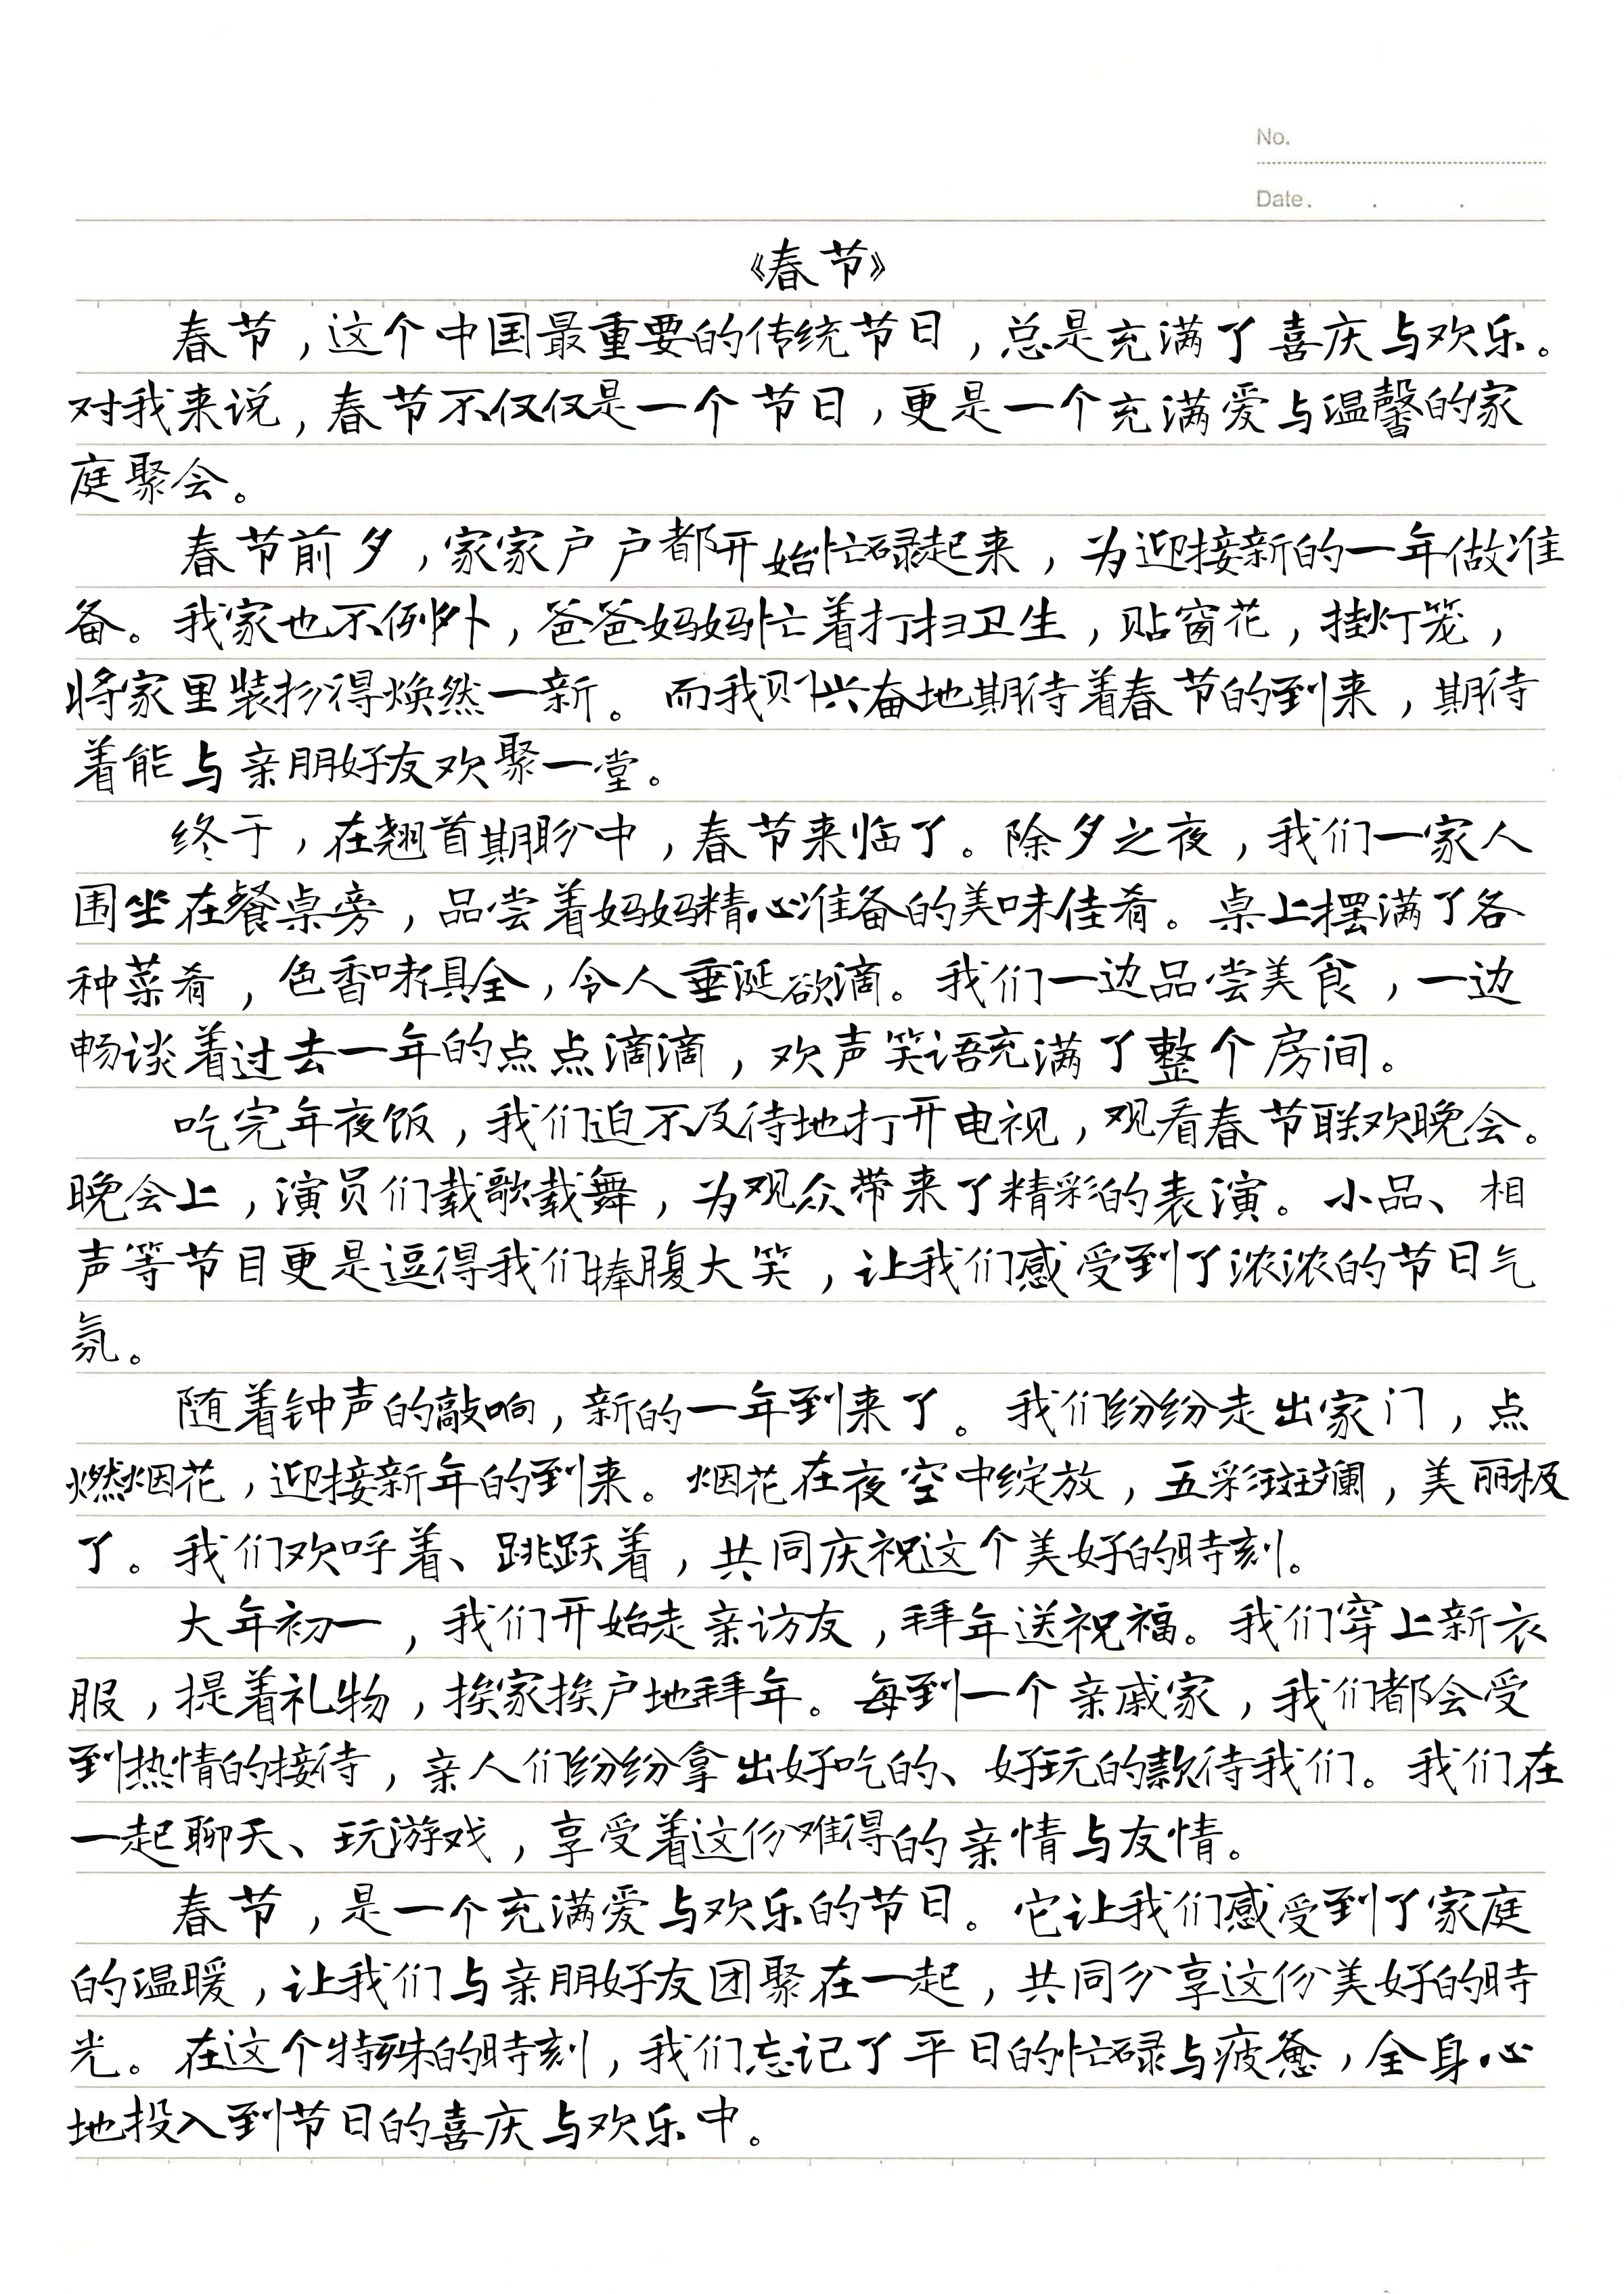 No.
Date.
《春节》
春节，这个中国最重要的传统节日，总是充满了喜庆与欢乐。
对我来说，春节不仅仅是一个节日，更是一个充满爱与温馨的家
庭聚会。
春节前夕，家家户户都开始忙碌起来，为迎接新的一年做准
备。我家也不例外，爸爸妈妈忙着打扫卫生，贴窗花，挂灯笼，
将家里装扮得焕然一新。而我则兴奋地期待着春节的到来，期待
着能与亲朋好友欢聚一堂。
终于，在翘首期盼中，春节来临了。除夕之夜，我们一家人
围坐在餐桌旁，品尝着妈妈精心准备的美味佳肴。桌上摆满了各
种菜肴，色香味俱全，令人垂涎欲滴。我们一边品尝美食，一边
畅谈着过去一年的点点滴滴，欢声笑语充满了整个房间。
吃完年夜饭，我们迫不及待地打开电视，观看春节联欢晚会。
晚会上，演员们载歌载舞，为观众带来了精彩的表演。小品、相
声等节目更是逗得我们捧腹大笑，让我们感受到了浓浓的节日气
氛。
随着钟声的敲响，新的一年到来了。我们纷纷走出家门，点
燃烟花，迎接新年的到来。烟花在夜空中绽放，五彩斑斓，美丽极
了。我们欢呼着、跳跃着，共同庆祝这个美好的時刻。
大年初一，我们开始走亲访友，拜年送祝福。我们穿上新衣
服，提着礼物，挨家挨户地拜年。每到一个亲戚家，我们都会受
到热情的接待，亲人们纷纷拿出好吃的、好玩的款待我们。我们在
一起聊天、玩游戏，享受着这份难得的亲情与友情。
春节，是一个充满爱与欢乐的节日。它让我们感受到了家庭
的温暖，让我们与亲朋好友团聚在一起，共同分享这份美好的時
光。在这个特殊的時刻，我们忘记了平日的忙碌与疲惫，全身心
地投入到节日的喜庆与欢乐中。